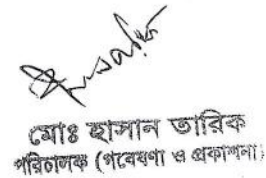 মোঃ হাসান তারিক
পরিচালক (গবেষণা ও প্রকাশনা)